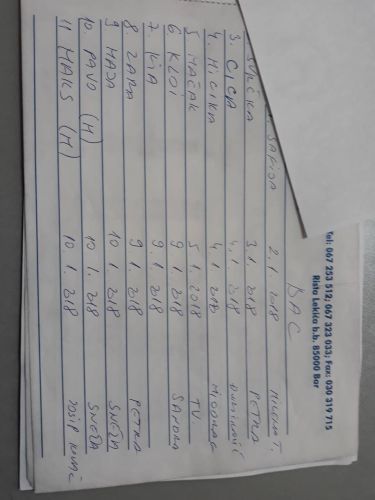 Tel: 067 253 512, 067 323 033; Fax: 030 319 715
Rista Lekića b.b. 85000 Bar
BAC
SAFIJA 2.1.2018 MILENA T.
3.1.2018 PETRA
3. CICA 4.1.2018
4. MICIKA 4.1.2018
5. MAČAK 5.1.2018 TV.
6. KLOI 9.1.2018
7. 9.1.2018
8. ZARA 9.1.2018 PETRA
9. MAJA 10.1.2018 SNEŽA
10. PAVO (M) 10.1.2018 SNEŽA
11. MAKS (M) 10.1.2018 JOSIP KOVAČ